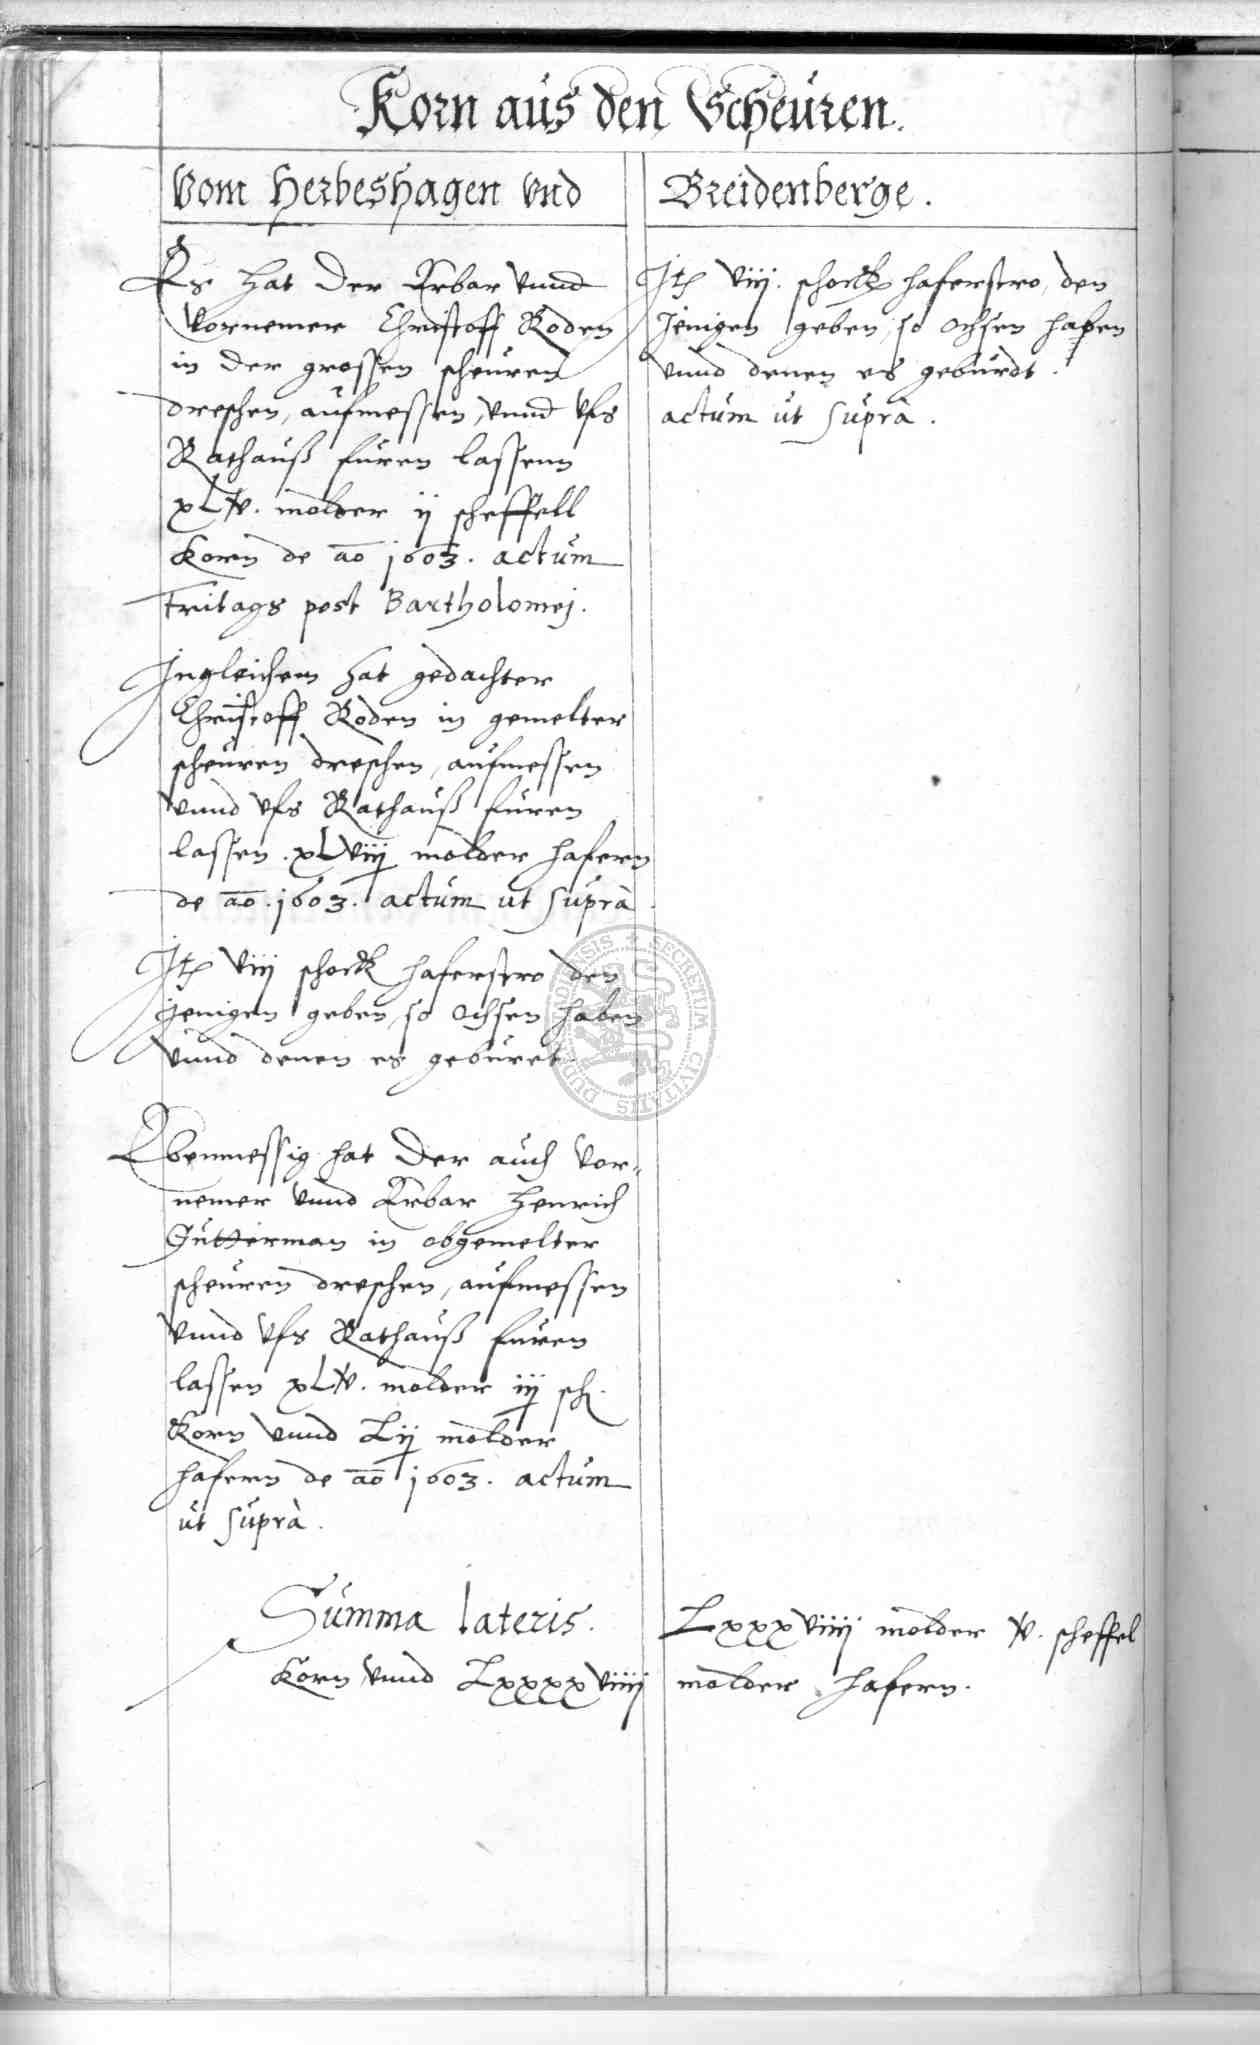 Korn aus den Scheuren.
Vom Herbeshagen vnd
Breidenberge.
Es hat der Erbar vnnd
Vornemer Christoff Roden
in der grossen scheuren
dreschen, aufmessen, vnnd vfs
Rathauß furen lassenn
xLv. molder ij scheffell
Korn de ao 1603. actum
Fritags post Bartholomej.
Ingleichem hat gedachter
Christoff Roden in gemelter
scheuren dreschen, aufmessen
vnnd vfs Rathauß furen
lassen. xLviij molder hafern
de ao. 1603. actum ut suprà
Jtem viij schock haferstro den
jenigen geben, so ochsen haben
vnnd denen es geburet
Ebenmessig hat der auch vor-
nemer vnnd Erbar Henrich
Gutterman in obgemelter
scheuren dreschen, aufmessen
vnnd vfs Rathauß furen
lassen xLv. molder iij sch.
Korn vnnd Lij molder
hafern de ao 1603. actum
ut suprà.
Jtem viij. schock haferstro, den
jenigen geben, so ochsen haben
vnnd denen es geburdt.
actum ut suprà.
Summa lateris. Lxxxxviiij molder v. scheffel
Korn vnnd Lxxxxviiij molder hafern.
SECRETUM CIVITATIS DUDERSTADIENSIS